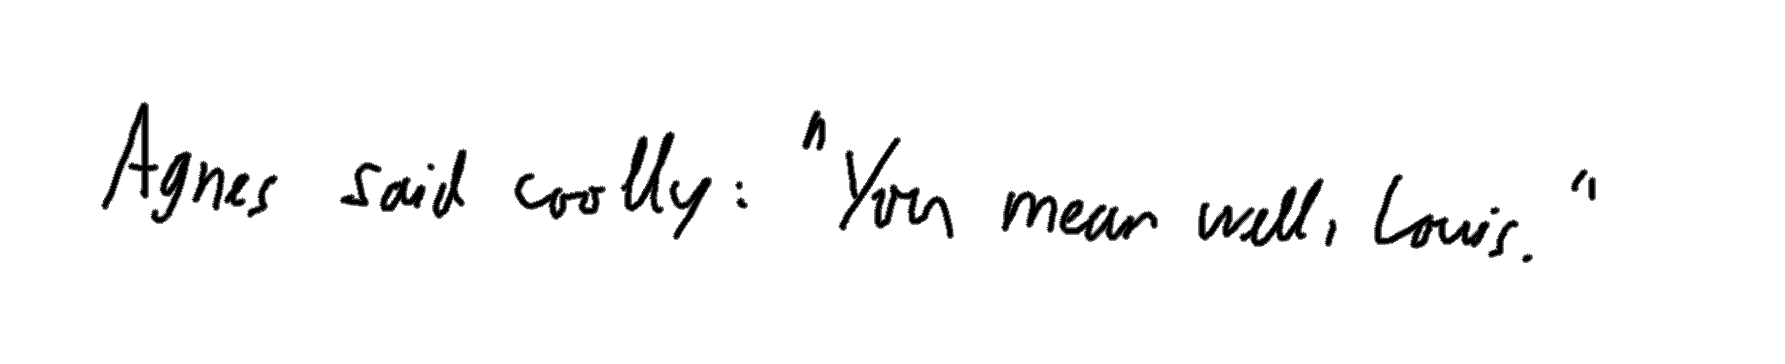 Agnes said coolly: "You mean well, Louis."